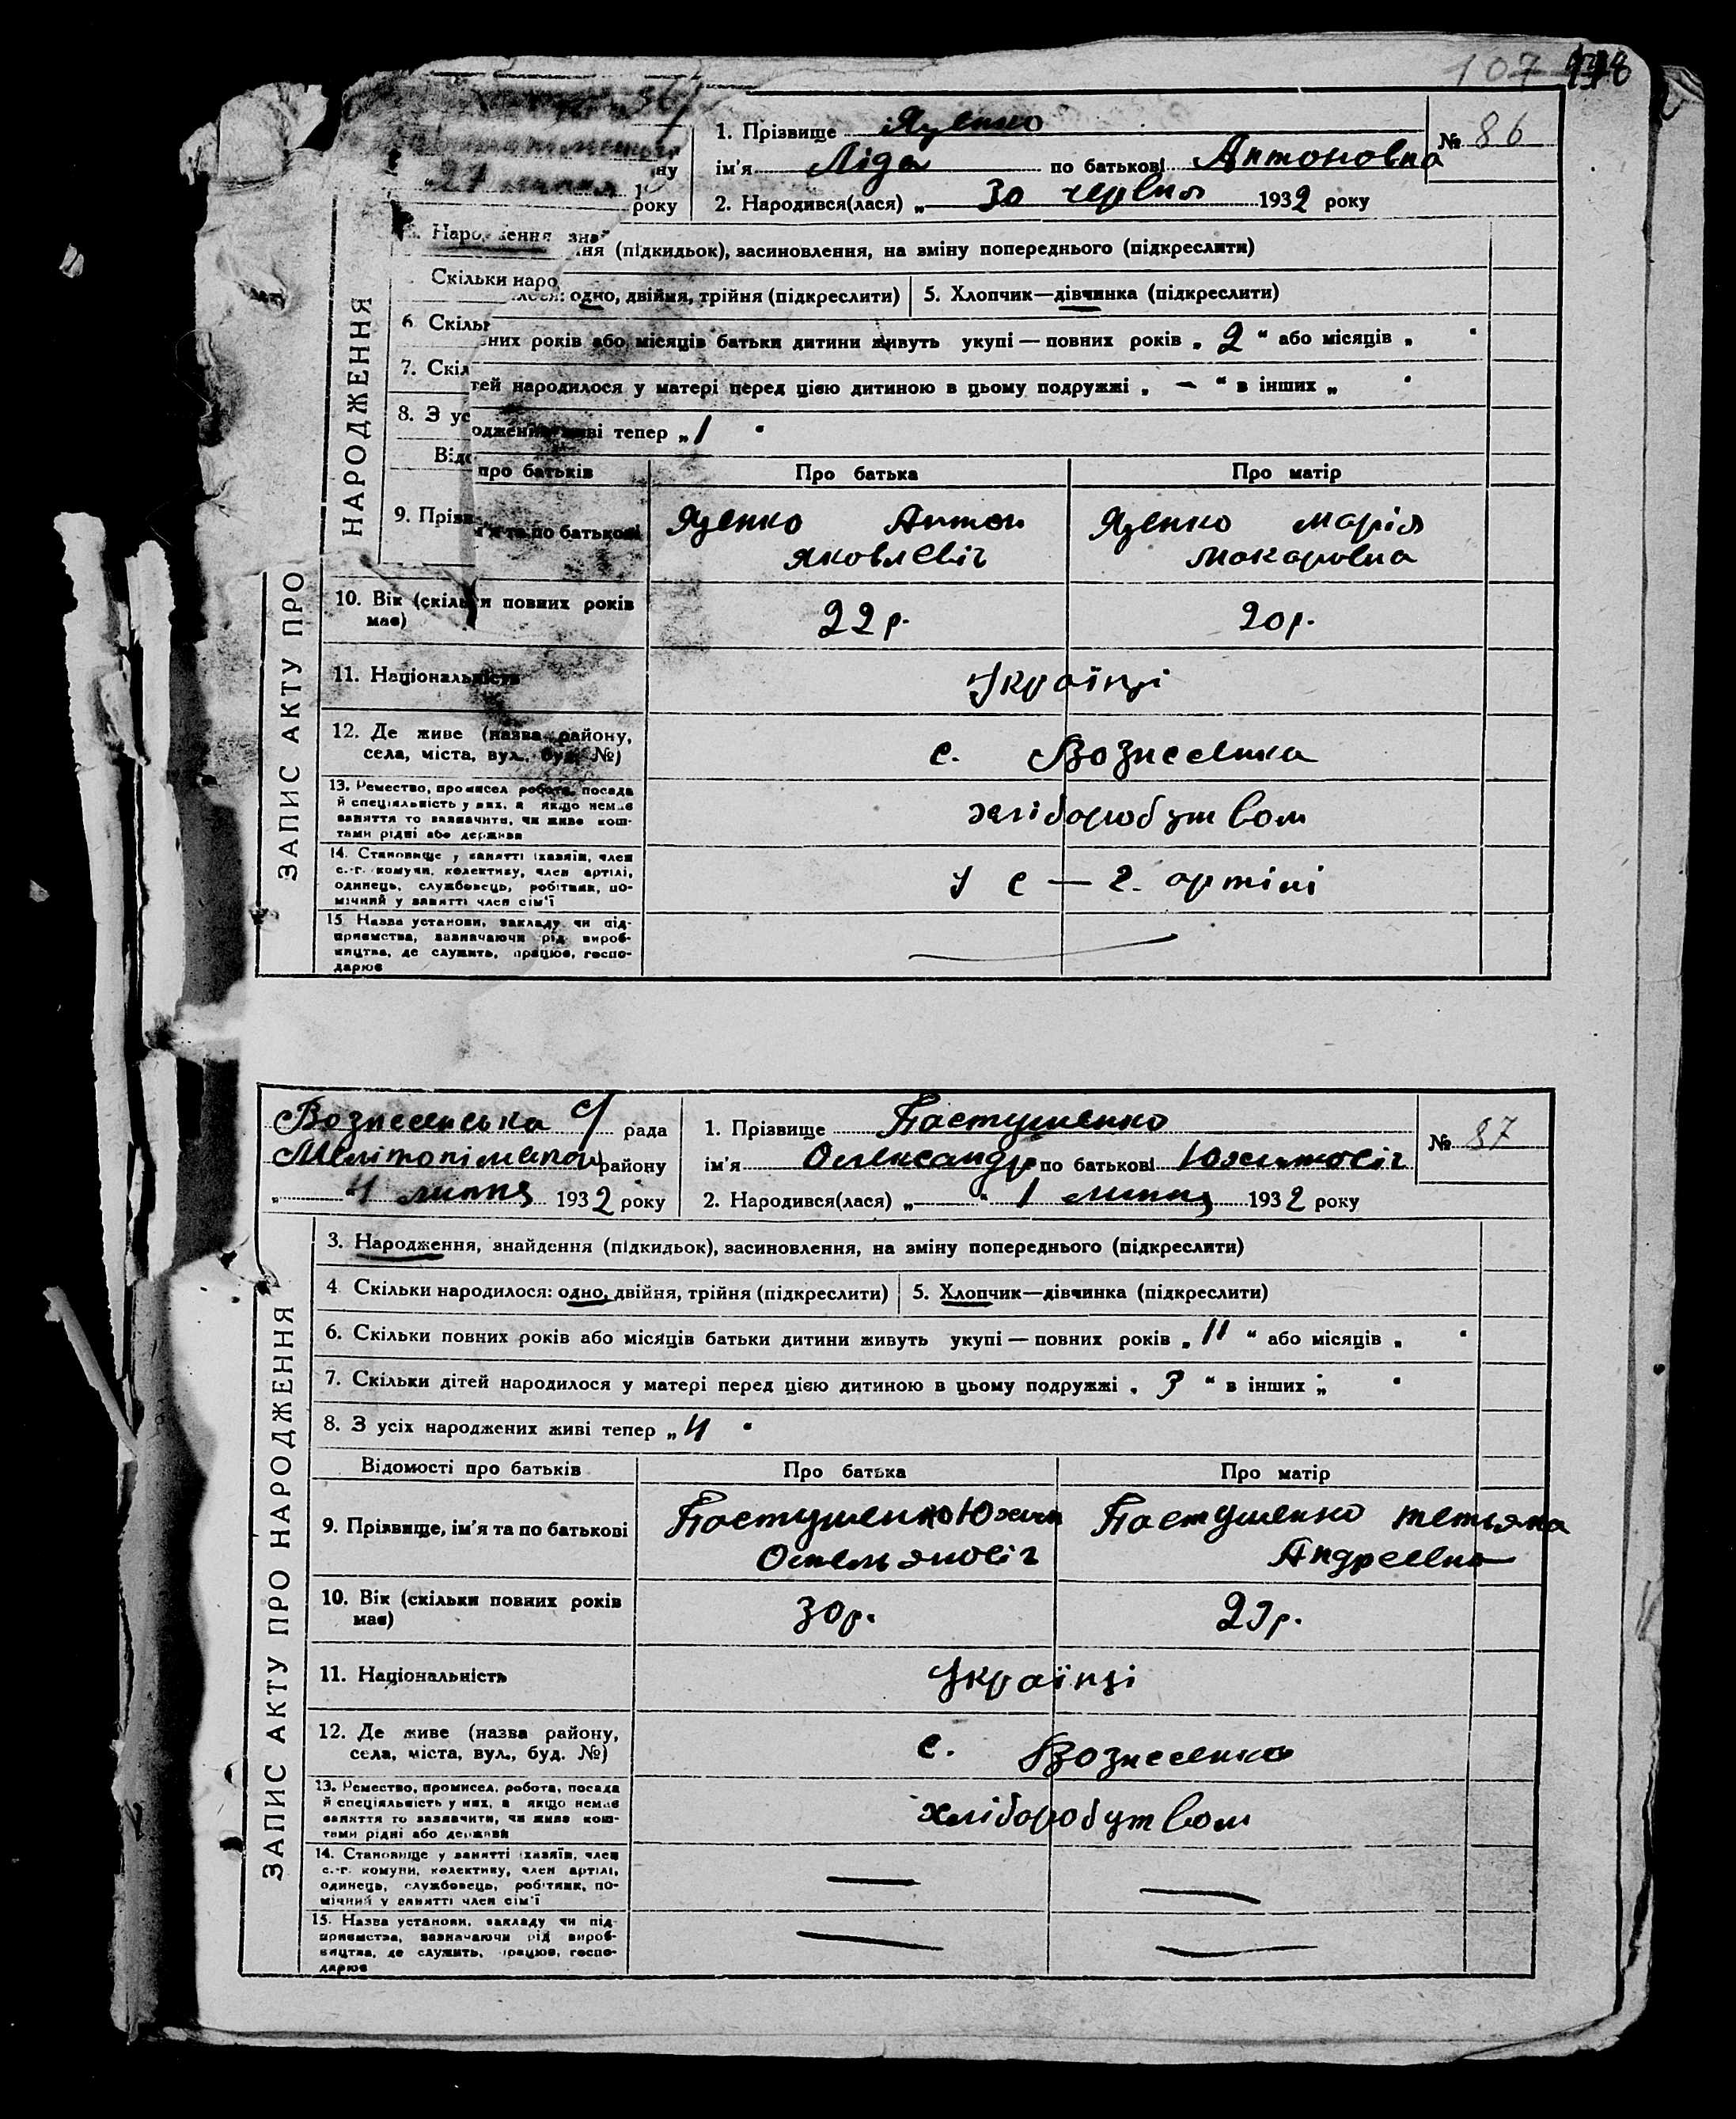 107 118
1. Прізвище Яценко
№ 86
ім'я Ліда по батькові Антоновна
ну
27 липня 1
року
2. Народився(лася) „ 30 червня 1932 року
Наро ення зна
ня (підкидьок), засиновлення, на зміну попереднього (підкреслити)
Скільки наро
лося: одно, двійня, трійня (підкреслити) 5. Хлопчик—дівчинка (підкреслити)
6. Скіль
них років або місяців батьки дитини живуть укупі — повних років „ 2 “ або місяців „ “
7. Скіл
тей народилося у матері перед цією дитиною в цьому подружжі „ — “ в інших „ “
8. З ус
оджених живі тепер „ 1 “
Відо
про батьків Про батька Про матір
9. Прізв
м'я та по батькові Яценко Антон Яценко Марія
Яковлевіч Макаровна
10. Вік (скільки повних років
має) 22 р. 20 р.
11. Національність Українці
12. Де живе (назва району,
села, міста, вул., буд. №) с. Вознесенка
13. Ремество, промисел, робота, посада
й спеціяльність у них, а якщо немає
заняття то зазначити, чи живе кош-
тами рідні або держави хліборобутвом
14. Становище у занятті (хазяїн, член
с.-г. комуни, колективу, член артілі,
одинець, службовець, робітник, по-
мічний у занятті член сім'ї У с — г. артілі
15. Назва установи, закладу чи під-
приємства, зазначаючи рід вироб-
ництва, де служить, працює, госпо-
дарює
ЗАПИС АКТУ ПРО НАРОДЖЕННЯ
Вознесенська с/ рада
1. Прізвище Пастушенко
№ 87
району
ім'я Олександр по батькові Юхимовіч
„ 4 липня 1932 року
2. Народився(лася) „ “ 1 липня 1932 року
3. Народження, знайдення (підкидьок), засиновлення, на зміну попереднього (підкреслити)
4 Скільки народилося: одно, двійня, трійня (підкреслити) 5. Хлопчик—дівчинка (підкреслити)
6. Скільки повних років або місяців батьки дитини живуть укупі — повних років „ 11 “ або місяців „ “
7. Скільки дітей народилося у матері перед цією дитиною в цьому подружжі „ 3 “ в інших „ “
8. З усіх народжених живі тепер „ 4 “
Відомості про батьків Про батька Про матір
9. Прізвище, ім'я та по батькові Пастушенко Юхим Пастушенко Тетьяна
Омельяновіч Андреевна
10. Вік (скільки повних років
має) 30 р. 29 р.
11. Національність Українці
12. Де живе (назва району,
села, міста, вул., буд. №) с. Вознесенка
13. Ремество, промисел, робота, посада
й спеціяльність у них, а якщо немає
заняття то зазначити, чи живе кош-
тами рідні або держави хліборобутвом
14. Становище у занятті (хазяїн, член
с.-г. комуни, колективу, член артілі,
одинець, службовець, робітник, по-
мічний у занятті член сім'ї — —
15. Назва установи, закладу чи під-
приємства, зазначаючи рід вироб-
ництва, де служить, працює, госпо-
дарює — —
ЗАПИС АКТУ ПРО НАРОДЖЕННЯ